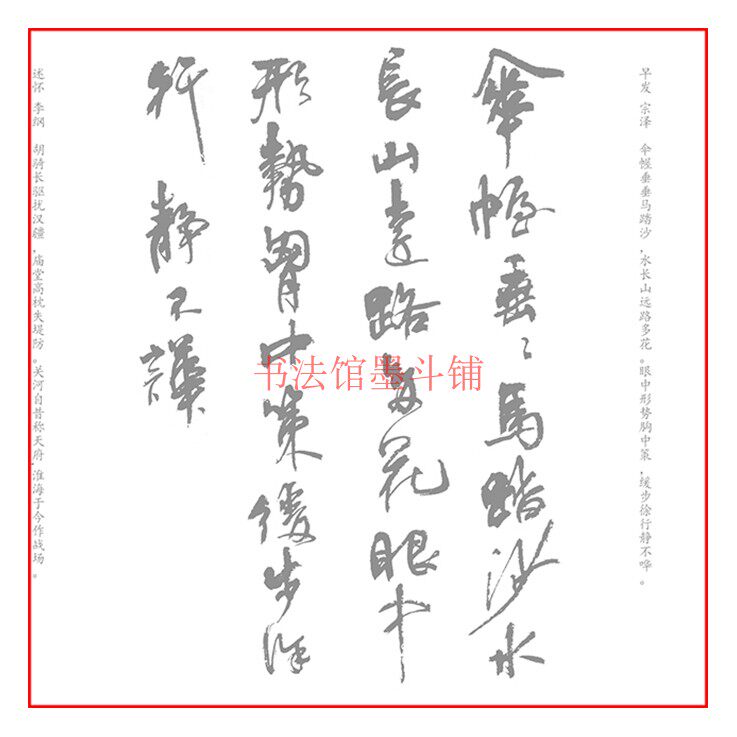 早发 宗泽 伞幄垂垂马踏沙,水长山远路多花。眼中形势胸中策,缓步徐行静不哗。
傘幄垂〻馬踏沙水
長山遠路多花眼中
形勢胷中策緩步徐
行靜不譁
述怀 李纲 胡骑长驱扰汉疆,庙堂高枕失堤防。关河自昔称天府,淮海于今作战场。
书法馆墨斗铺